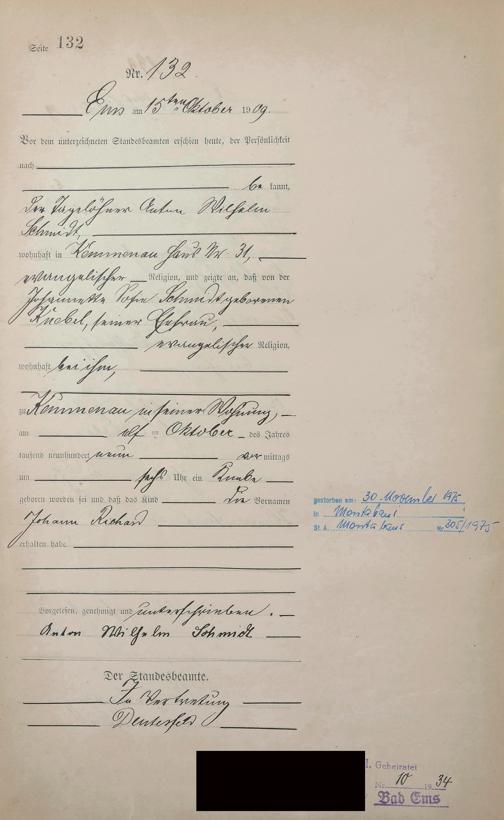 Seite 132
Nr. 132
Ems am 15ten Oktober 1909.
Vor dem unterzeichneten Standesbeamten erschien heute, der Persönlichkeit
nach
bekannt,
der Tagelöhner Anton Wilhelm
Schmidt,
wohnhaft in Kemmenau Haus Nr 31,
evangelischer Religion, und zeigte an, daß von der
Johannette Sofie Schmidt geborenen
Knebel, seiner Ehefrau,
evangelischer Religion,
wohnhaft bei ihm,
zu Kemmenau in seiner Wohnung,
am elf ten Oktober des Jahres
tausend neunhundert neun vor mittags
um sechs Uhr ein Knabe
geboren worden sei und daß das Kind die Vornamen
Johann Richard
erhalten habe.
gestorben am: 30. November 1975
in Montabaur
St. A. Montabaur Nr. 305/1975
Vorgelesen, genehmigt und unterschrieben.
Anton Wilhelm Schmidt
Der Standesbeamte.
In Vertretung
I. Geheiratet
Nr. 10 1934
Bad Ems